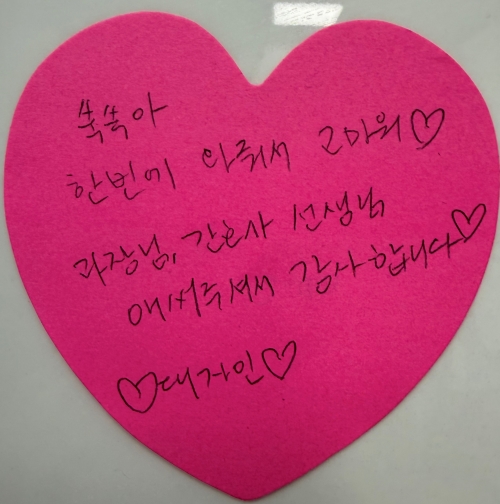 쑥쑥아
한번에 와줘서 고마워♡
과장님, 간호사 선생님
애써주셔서 감사합니다♡
♡대거인♡